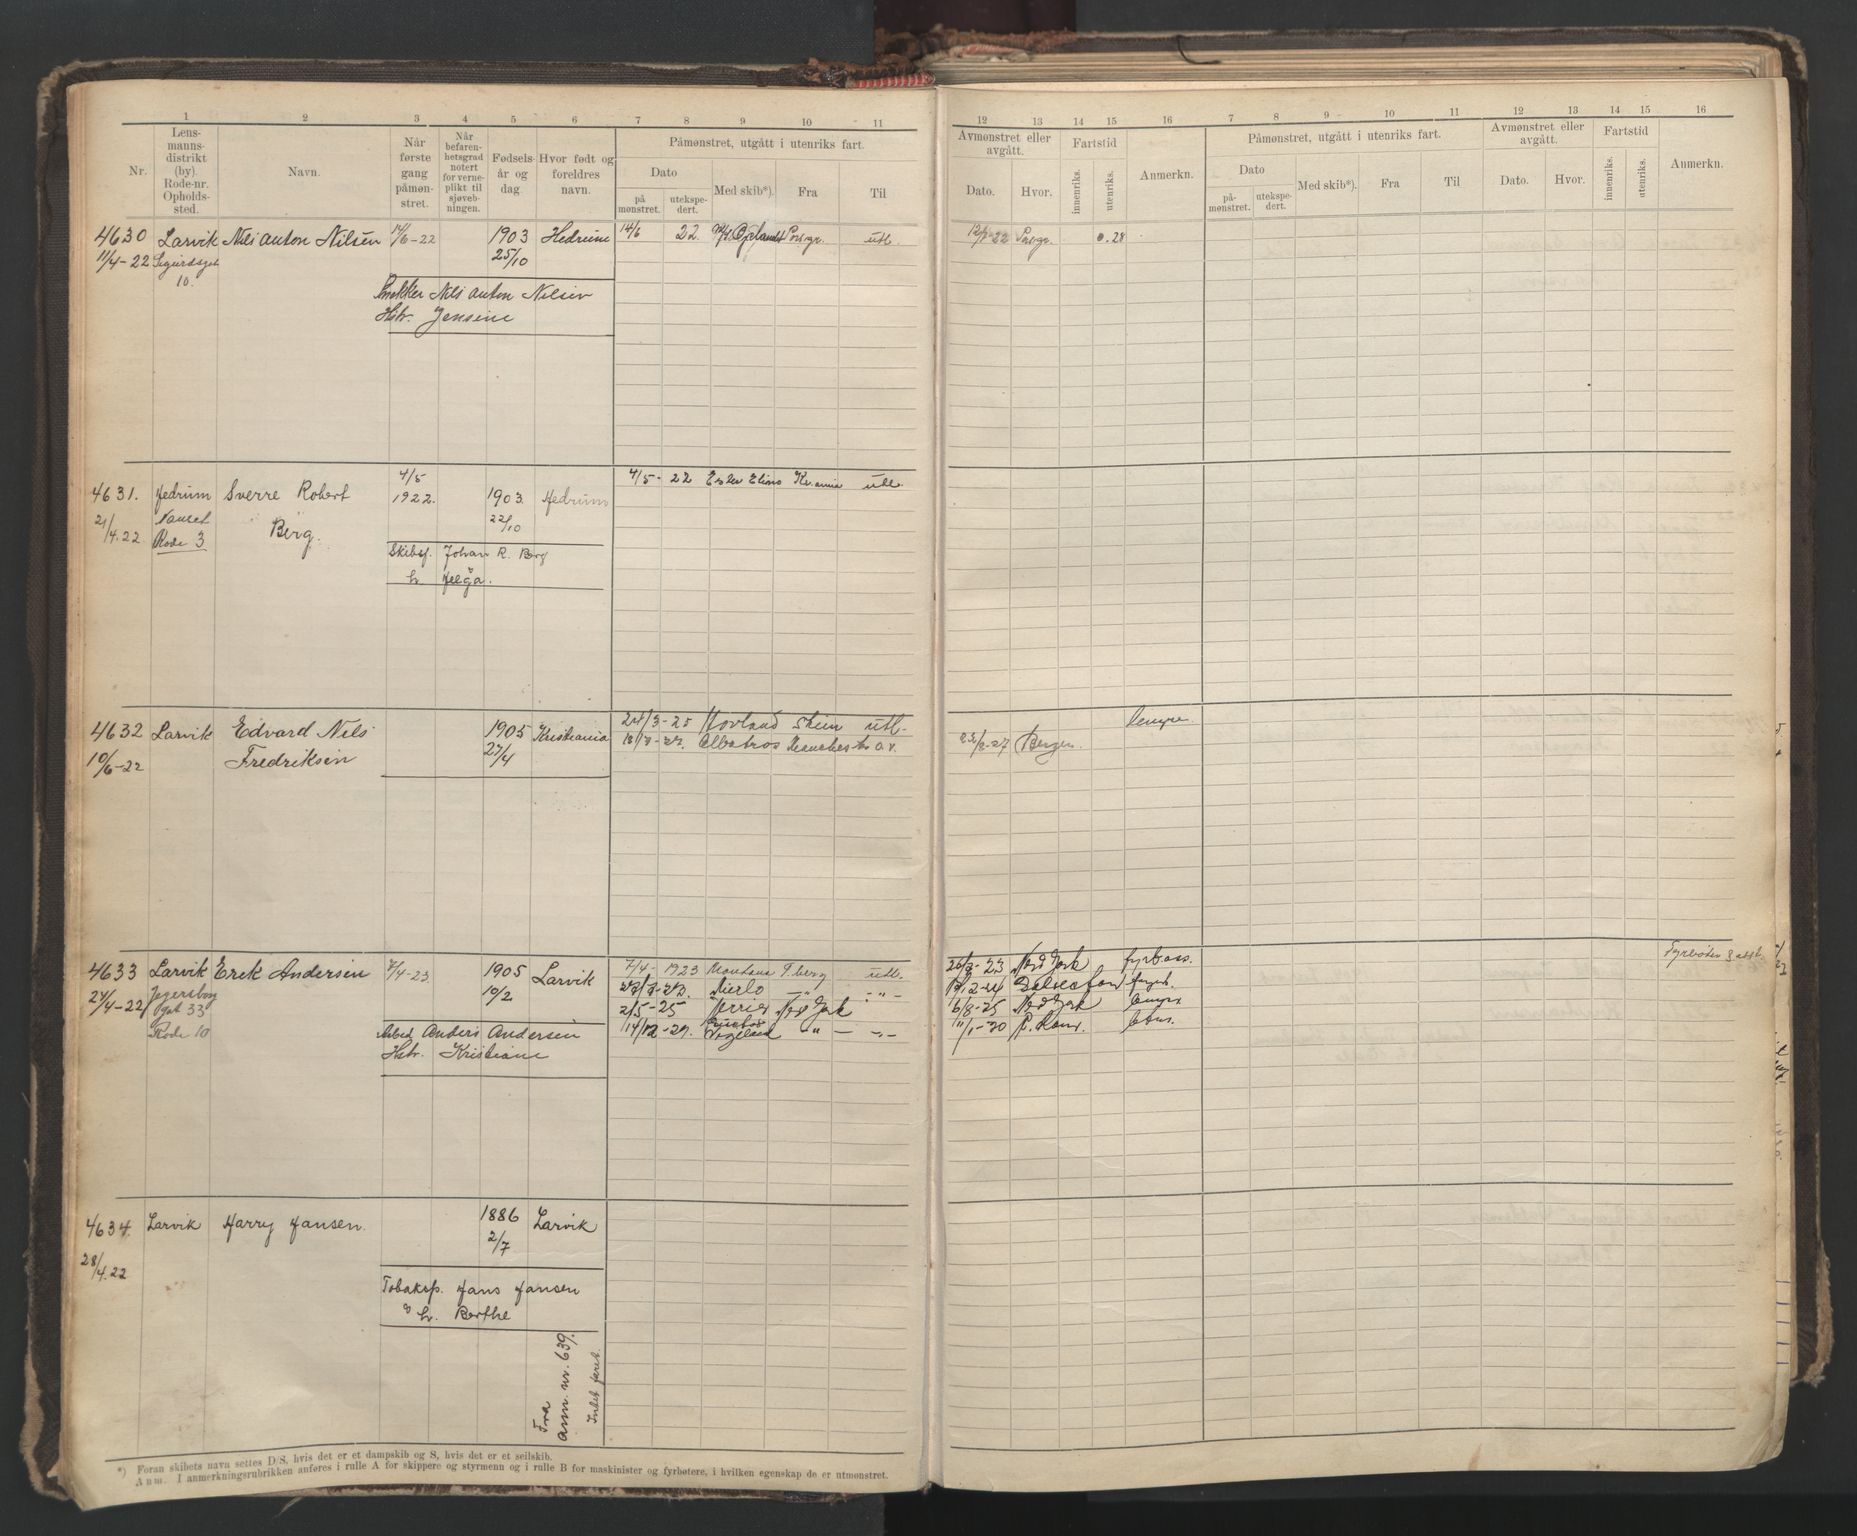 1 2 3 4 5 6 7 8 9 10 11
Nr. Lensmannsdistrikt (by). Rode-nr. Opholdssted. Navn. Når første gang påmønstret. Når befarenhetsgrad notert for verneplikt til sjøvebningen. Fødselsår og dag. Hvor født og foreldres navn. Påmønstret, utgått i utenriks fart.
Dato Med skib*). Fra Til
påmønstret. utekspedert.
4630 Larvik Nils Anton Nilsen 14/6-22 1903 Hedrum 14/6 22 Porsgr. utl.
11/4-22 Sigurdsgt 25/10
10.
Snekker Nils Anton Nilsen
Hstr. Jensine
4631. Hedrum Sverre Robert 4/5 1922. 1903. Hedrum 4/5-22 Kr.ania utl.
21/4.22 Nanset Berg. 22/10
Rode 3
Skibsf. Johan R. Berg
h. Helga.
4632 Larvik Edvard Nils 1905 Kristiania 24/3-25 Hovland Skien utl.
10/6-22 Fredriksen 27/4 Albatros
4633 Larvik Erik Andersen 7/4-23. 1905 Larvik 7/4-1923 Montana T.berg utl.
24/4-22 Jegersborg 10/2.
gt 33 2/5-25 New York
Rode 10 14/12-29.
Arbeid. Anders Andersen
Hstr. Kristiane
4634. Larvik Harry Hansen. 1886 Larvik
28/4.22 2/7
Tobaksp. Hans Hansen
& h. Berthe
Fra
ann. nr. 639.
Intet faret.
*) Foran skibets navn settes D/S, hvis det er et dampskib og S, hvis det er et seilskib.
Anm. I anmerkningsrubrikken anføres i rulle A for skippere og styrmenn og i rulle B for maskinister og fyrbøtere, i hvilken egenskap de er utmønstret.
12 13 14 15 16 7 8 9 10 11 12 13 14 15 16
Avmønstret eller avgått. Fartstid Anmerkn. Påmønstret, utgått i utenriks fart. Avmønstret eller avgått. Fartstid Anmerkn.
Dato. Hvor. innenriks. utenriks. Dato Med skib*). Fra Til Dato. Hvor. innenriks. utenriks.
påmønstret. utekspedert.
12/7-22 Porsgr. 0.28
lempe.
Bergen.
26/8-23 New York fyrb.ass. Fyrbøter
16/8-25 New York lemper
11/1-30